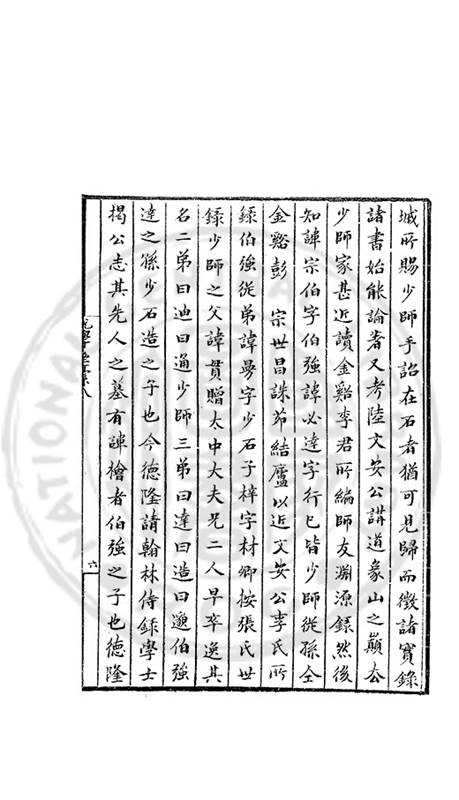 城所賜少師手詔在石者猶可見歸而徵諸實錄
諸書始能論著又考陸文安公講道象山之巔去
少師家甚近讀金谿李君所編師友淵源錄然後
知諱宗伯字伯強諱必達字行已皆少師從孫仝
金谿彭 宗世昌誅茆結廬以近文安公李氏所
錄伯強從弟諱昜字少石子梓字材卿按張氏世
錄少師之父諱貫贈太中大夫兄二人早卒逸其
名二弟曰迪曰通少師三弟曰達曰造曰遜伯強
達之孫少石造之子也今德隆請翰林侍錄學士
揭公志其先人之墓有諱檜者伯強之子也德隆
六
NATIONAL